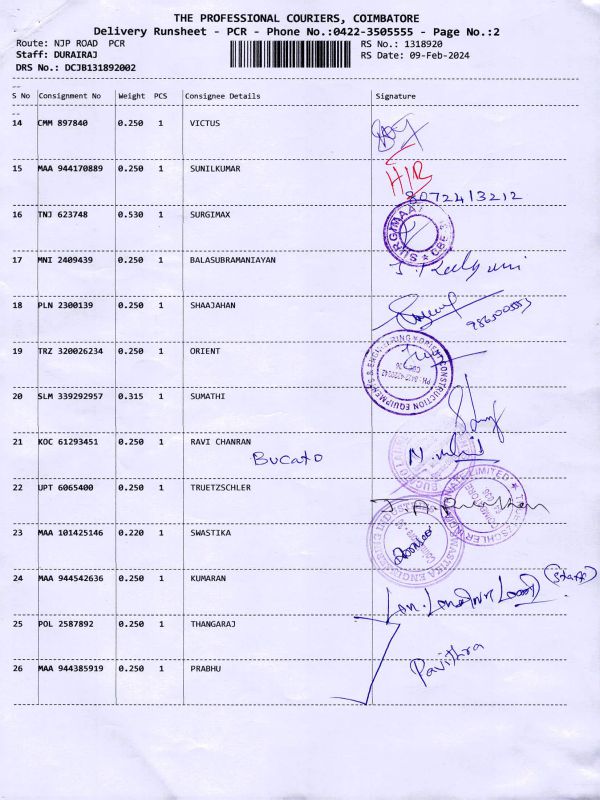 THE PROFESSIONAL COURIERS, COIMBATORE
Delivery Runsheet - PCR - Phone No.:0422-3505555 - Page No.:2
Route: NJP ROAD PCR RS No.: 1318920
Staff: DURAIRAJ RS Date: 09-Feb-2024
DRS No.: DCJB131892002
S No Consignment No Weight PCS Consignee Details Signature
14 CMM 897840 0.250 1 VICTUS
15 MAA 944170889 0.250 1 SUNILKUMAR H/R
8072413212
16 TNJ 623748 0.530 1 SURGIMAX
17 MNI 2409439 0.250 1 BALASUBRAMANIAYAN
18 PLN 2300139 0.250 1 SHAAJAHAN
19 TRZ 320026234 0.250 1 ORIENT
20 SLM 339292957 0.315 1 SUMATHI
21 KOC 61293451 0.250 1 RAVI CHANRAN
BUCATO
22 UPT 6065400 0.250 1 TRUETZSCHLER
23 MAA 101425146 0.220 1 SWASTIKA
24 MAA 944542636 0.250 1 KUMARAN (Staff)
25 POL 2587892 0.250 1 THANGARAJ
26 MAA 944385919 0.250 1 PRABHU Pavithra